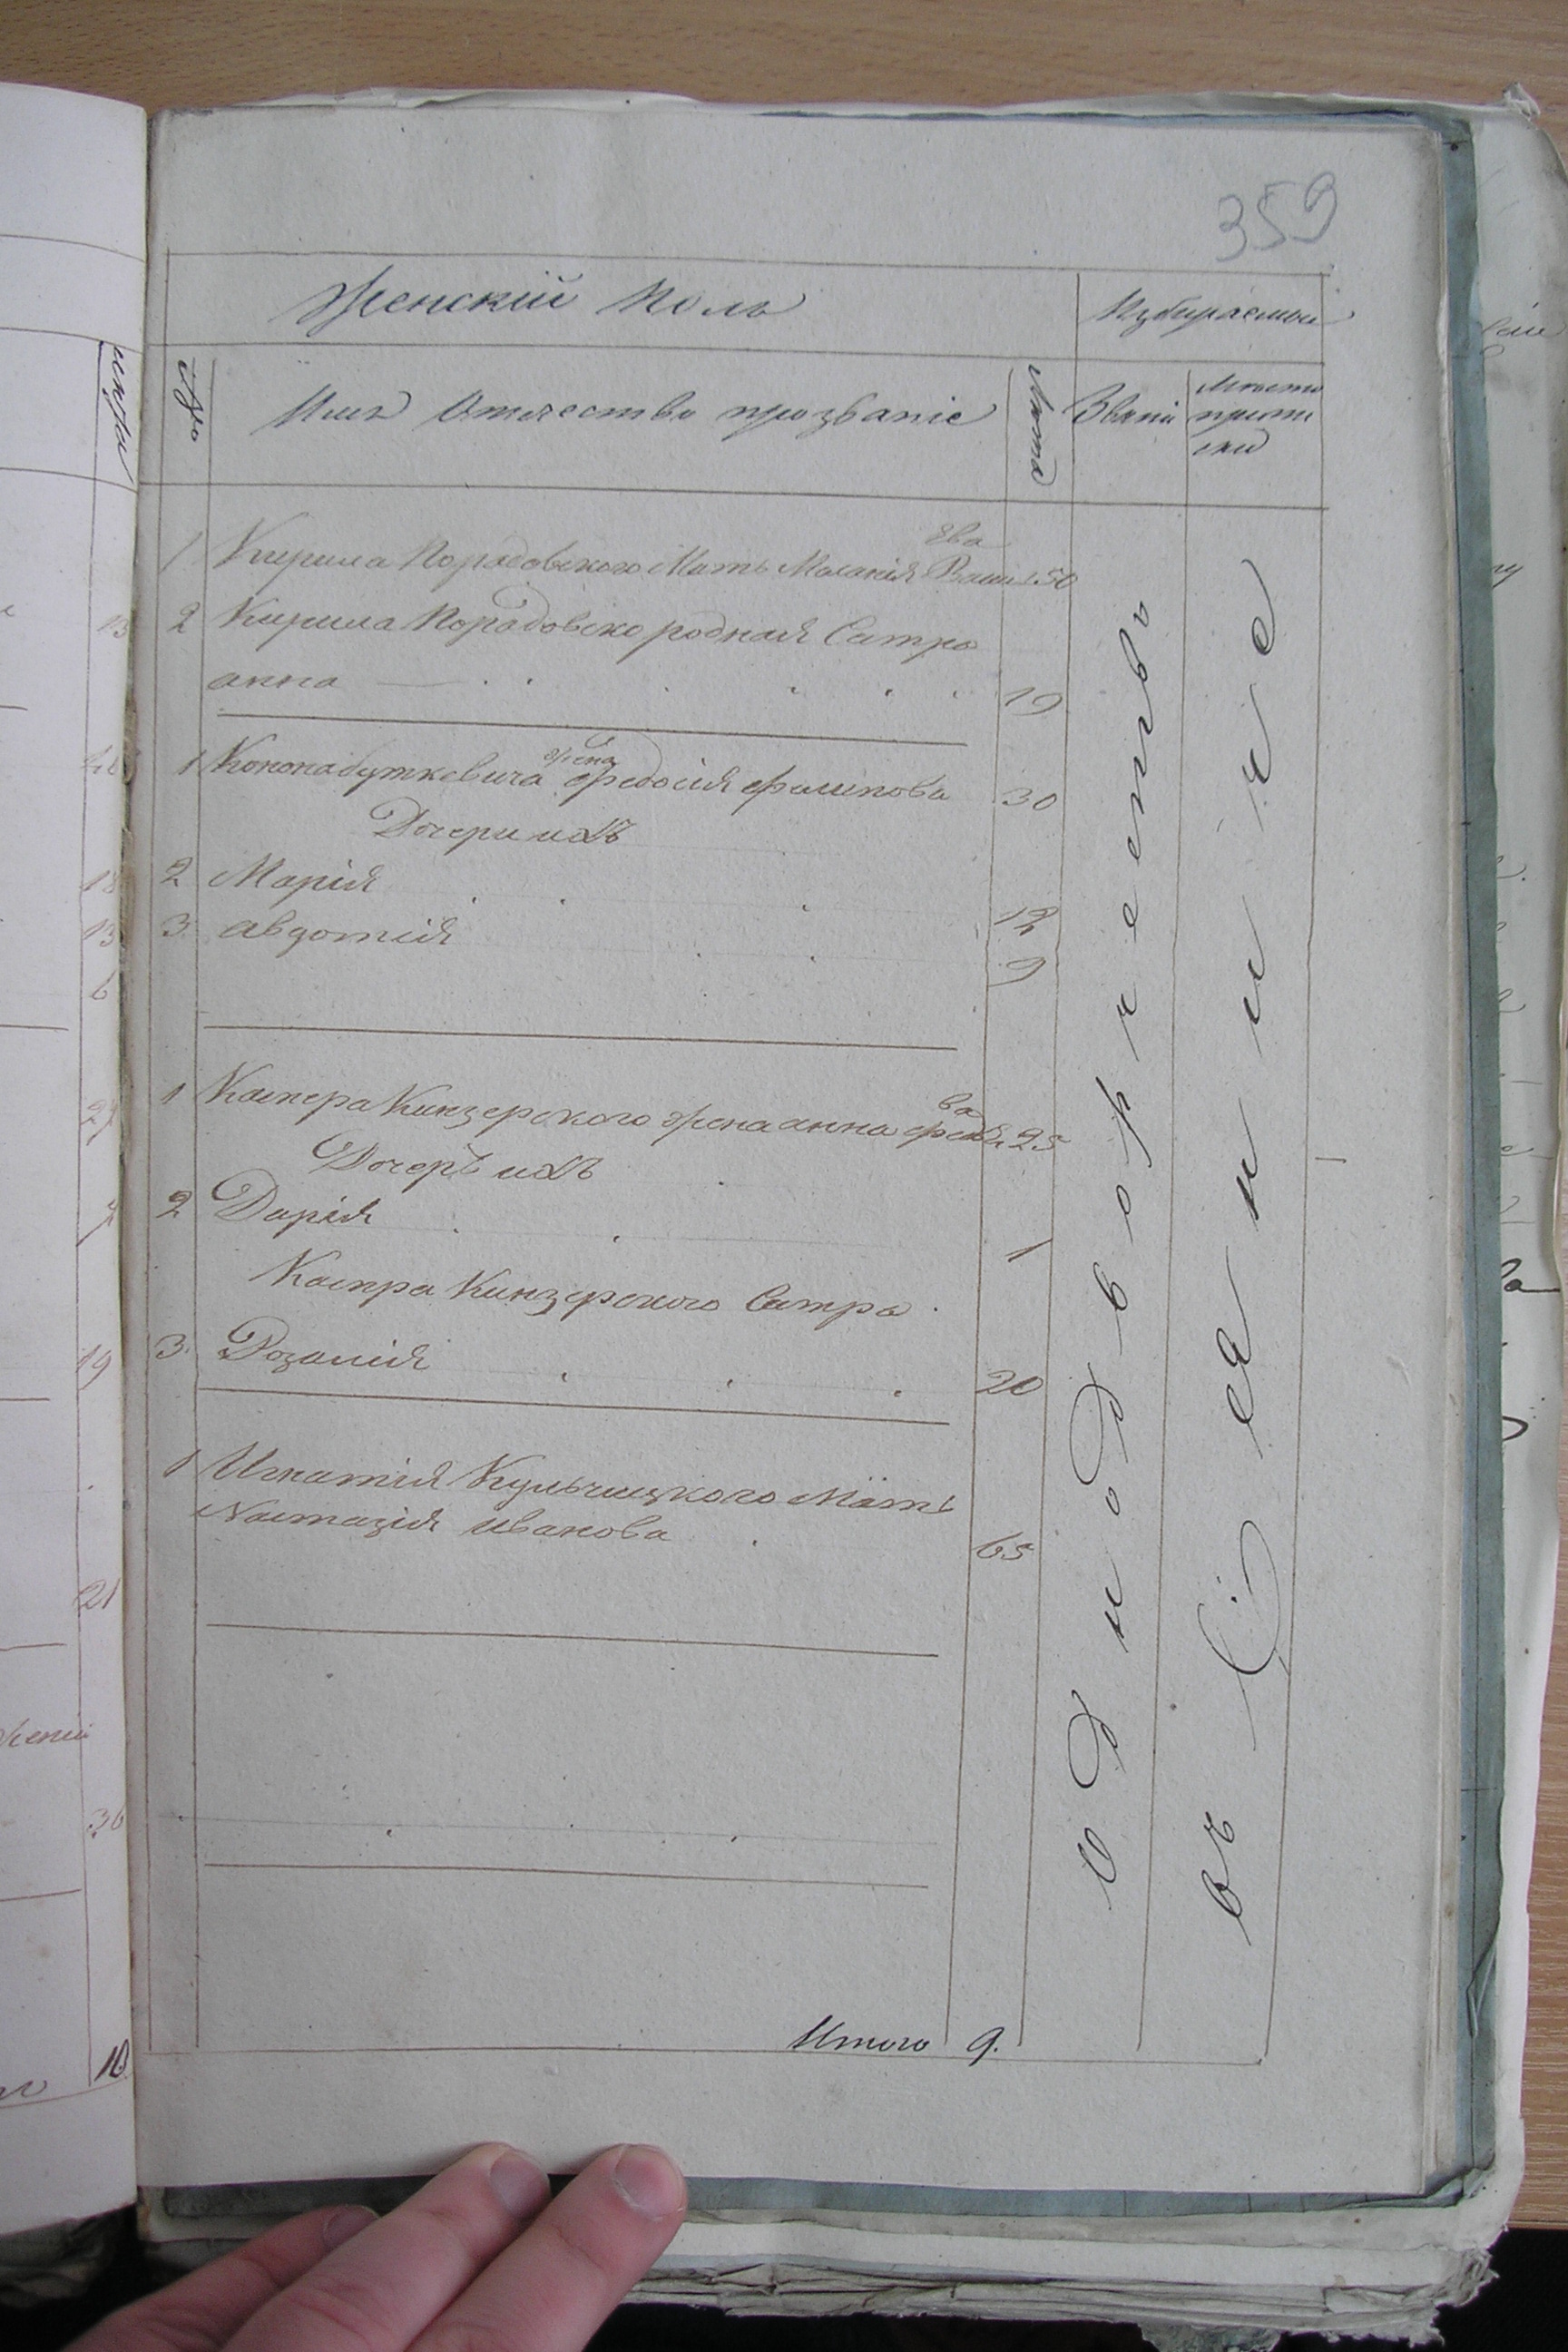 359
Женскій Полъ
Избираемыи
№
Имя Отчество прозваніе
Лѣта
Званія
Мѣсто
припи
ски
1 Кирила Порадовского Мать Маланія Васильева 50
2 Кирила Порадовско родная Сестра
анна 19
1 Конона буткевича жена ѳедосія филипова 30
Дочери ихъ
2 Марія 12
3 авдотія 9
1 Каспера Кинзерского жена анна 25
Дочерь ихъ
2 Дарія 1
Каспра Кинзерского Сестра
3. Розалія 20
1 Игнатія Кульчицкого Мать
Настазія иванова 65
Однодворченгвъ
въ
Итого 9.
13
18
13
6
7
19
21
36
10